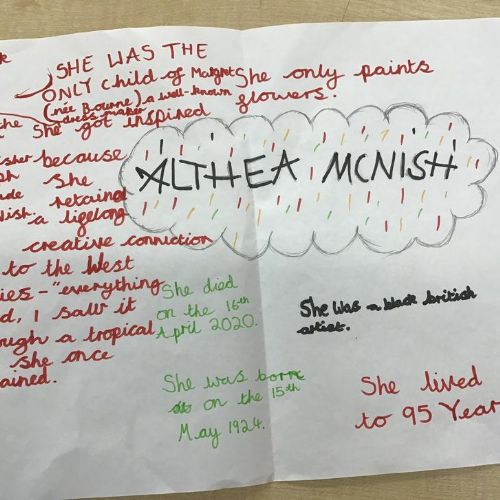 SHE WAS THE
ONLY child of Margret
(née Bourne) a well-known
dress maker
She got inspired
because
She
retained
a lifelong
creative connection
to the West
ies - "everything
d, I saw it
ough a tropical
she once
ained.
She only paints
flowers.
ALTHEA MCNISH
She died
on the 16th
April 2020.
She was born
on the 15th
May 1924.
She was a black british
artist.
She lived
to 95 Year